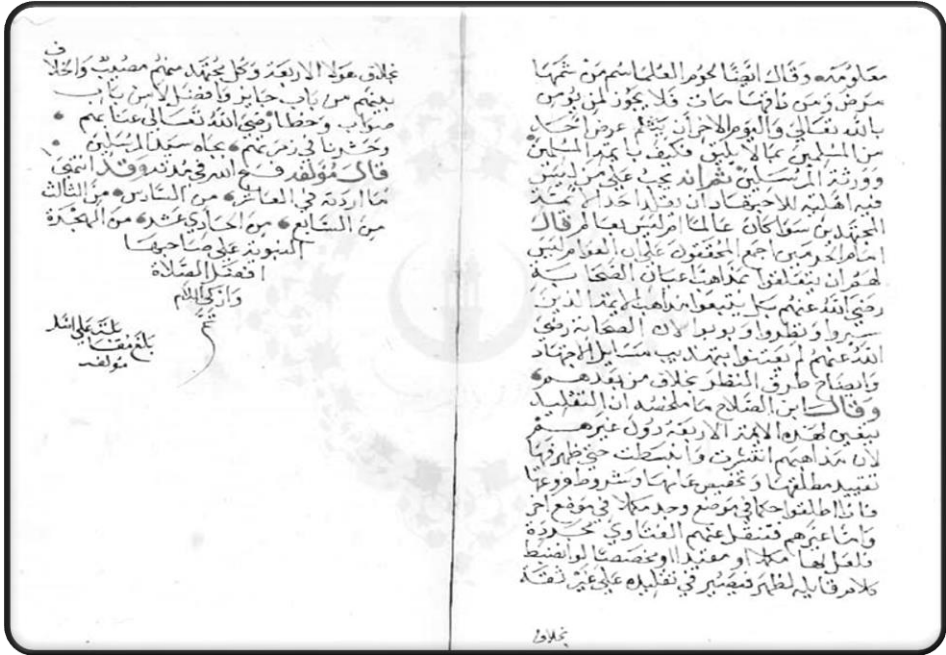 معلومة وقال ايضا لحوم العلما سم من شمها
مرض ومن ذاقها مات فلا يجوز لمن يؤمن
بالله تعالي واليوم الاخر ان يثلم عرض احد
من المسلمين بما لا يليق فكيف بايمة المسلمين
وورثة المرسلين ثم انه يجب علي من ليس
فيه اهلية للاجتهاد ان يقلد احد الايمة
المجتهدين سوا كان عالما ام ليس بعالم قال
امام الحرمين اجمع المحققون علي ان العوام ليس
لهم ان يتعلقوا بمذاهب اعيان الصحابة
رضي الله عنهم بل يتبعوا مذاهب الايمة الذين
سبروا ونظروا وبوبوا لان الصحابة رضي
الله عنهم لم يعتنوا بتهذيب مسايل الاجتهاد
وايضاح طرق النظر بخلاف من بعدهم
وقال ابن الصلاح ما ملخصه ان التقليد
يتعين لهذه الايمة الاربعة دون غيرهم
لان مذاهبهم انتشرت وانبسطت حتي ظهر فيها
تقييد مطلقها وتخصيص عامها وشروط فروعها
فاذا اطلقوا حكما في موضع وجد مكملا في موضع اخر
واما غيرهم فتنقل عنهم الفتاوي مجردة
فلعل لها مكملا او مقيدا او مخصصا لو انضبط
كلام قايله لظهر فيصير في تقليده علي غير ثقة
بخلاف
بخلاف هولا الاربعة وكل مجتهد منهم مصيب والخلاف
بينهم من باب جايز وافضل لا من باب
صواب وخطا رضي الله تعالي عنا عنهم
وحشرنا في زمرتهم بجاه سيد المرسلين
قال مؤلفه فسح الله في مدته وقد انتهي
ما اردته في العاشر من السادس من الثالث
من السابع من الحادي عشر من الهجرة
النبوية علي صاحبها
افضل الصلاة
وازكي السلام
بلغ مقابلة علي اصل
مؤلفه